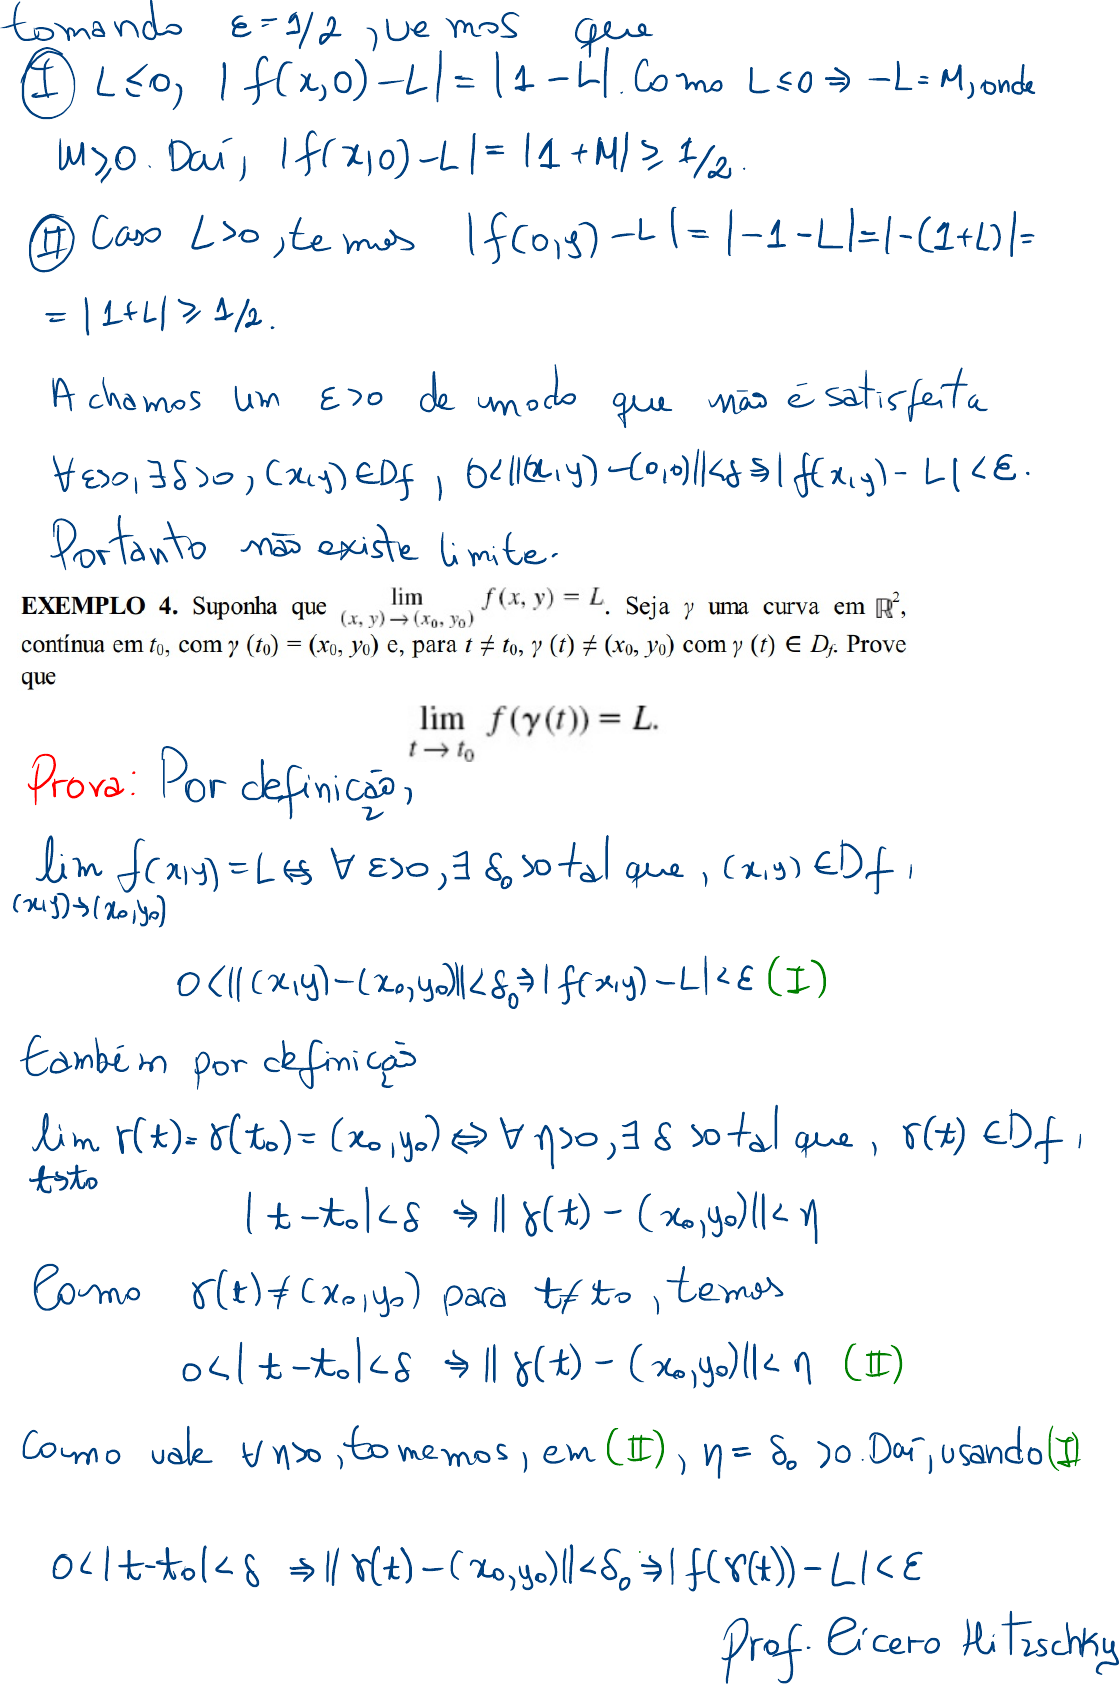 tomando ε = 1/2, vemos que
(I) L ≤ 0, |f(x,0) - L| = |1 - L|. Como L ≤ 0 ⇒ -L = M, onde
M ≥ 0. Daí, |f(x,0) - L| = |1 + M| ≥ 1/2.
(II) Caso L > 0, temos |f(0,y) - L| = |-1 - L| = |-(1+L)| =
= |1+L| ≥ 1/2.
Achamos um ε > 0 de modo que não é satisfeita
∀ ε>0, ∃ δ > 0, (x,y) ∈ Df, 0 < ||(x,y) - (0,0)|| < δ ⇒ |f(x,y) - L| < ε.
Portanto não existe limite.
EXEMPLO 4. Suponha que lim (x, y) → (x₀, y₀) f(x, y) = L. Seja γ uma curva em ℝ²,
contínua em t₀, com γ (t₀) = (x₀, y₀) e, para t ≠ t₀, γ (t) ≠ (x₀, y₀) com γ (t) ∈ Df. Prove
que
lim t → t₀ f(γ(t)) = L.
Prova: Por definição,
lim f(x,y) = L ⇔ ∀ ε>0, ∃ δ₀ >0 tal que, (x,y) ∈ Df,
(x,y)→(x₀,y₀)
0 < ||(x,y) - (x₀,y₀)|| < δ₀ ⇒ |f(x,y) - L| < ε (I)
também por definição
lim γ(t) = γ(t₀) = (x₀,y₀) ⇔ ∀ η>0, ∃ δ >0 tal que, γ(t) ∈ Df,
t→t₀
|t - t₀| < δ ⇒ ||γ(t) - (x₀,y₀)|| < η
Como γ(t) ≠ (x₀,y₀) para t ≠ t₀, temos
0 < |t - t₀| < δ ⇒ ||γ(t) - (x₀,y₀)|| < η (II)
Como vale ∀ η>0, tomemos, em (II), η = δ₀ >0. Daí, usando (I)
0 < |t - t₀| < δ ⇒ ||γ(t) - (x₀,y₀)|| < δ₀ ⇒ |f(γ(t)) - L| < ε
Prof. Cícero Hitzschky